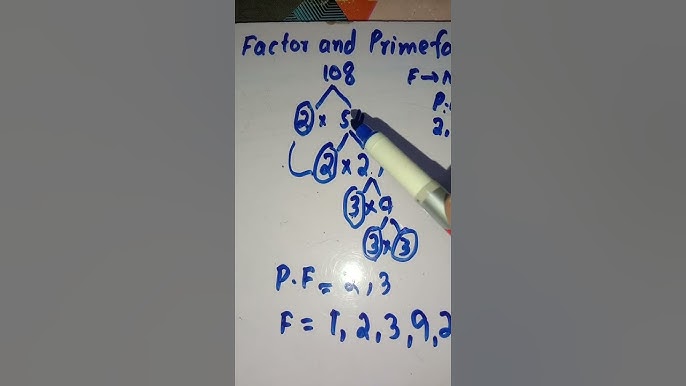 Factor and Primefa
108
F → N
2 × 5
P.
2,
2 × 2
3 × 9
3 × 3
P.F = 2, 3
F = 1, 2, 3, 9, 2